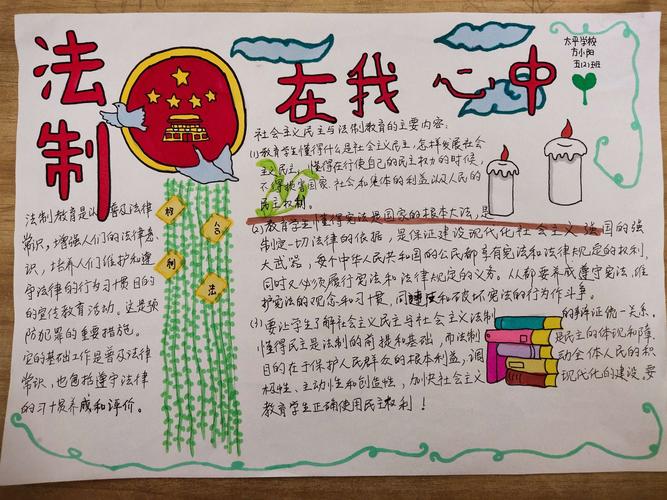 法制
在我心中
太平学校
方小阳
五(2)班
社会主义民主与法制教育的主要内容:
(1)教育学生懂得什么是社会主义民主,怎样发展社会
主义民主,懂得在行使自己的民主权力的时候,
不得损害国家、社会和集体的利益以及人民的
民主权利。
(2)教育学生懂得宪法是国家的根本大法,是
制定一切法律的依据,是保证建设现代化社会主义强国的强
大武器,每个中华人民共和国的公民都享有宪法和法律规定的权利,
同时又必须履行宪法和法律规定的义务。从都要养成遵守宪法,维
护宪法的观念和习惯,同违反和破坏宪法的行为作斗争。
(3)要让学生了解社会主义民主与社会主义法制的辩证统一关系。
懂得民主是法制的前提和基础,而法制是民主的体现和障。
目的在于保护人民群众的根本利益,调动全体人民的积
极性、主动性和创造性,加快社会主义现代化的建设,要
教育学生正确使用民主权利!
法制教育是以普及法律
常识,增强人们的法律意
识,培养人们维护和遵
守法律的行为习惯目的
的宣传教育活动。这是预
防犯罪的重要措施。
它的基础工作是普及法律
常识,也包括遵守法律
的习惯养成和评价。
权
利
法